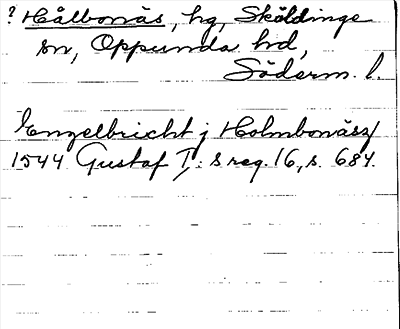 ? Hålbonäs, hg, Sköldinge
sn, Oppunda hd,
Söderm. l.
Engelbricht j Holmbonäsz/
1544 Gustaf I:s reg. 16, s. 684.